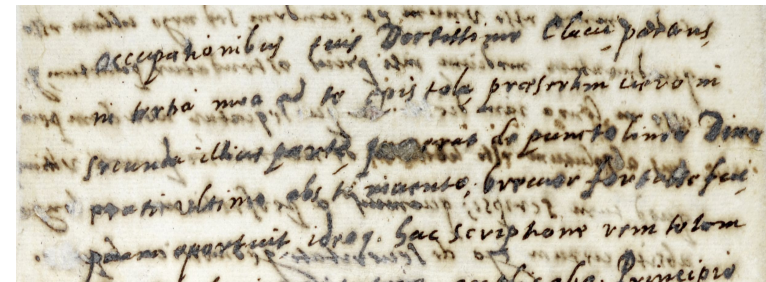 occupationibus tuis Doctissime Clavi parcens,
in tertia mea ad te epistola, præsertim vero in
secunda illius parte, de puncto lineæ
ultimo abs te invento, brevior fortasse fui,
quam oportuit, ideoq. hac scriptione rem totam
Principio